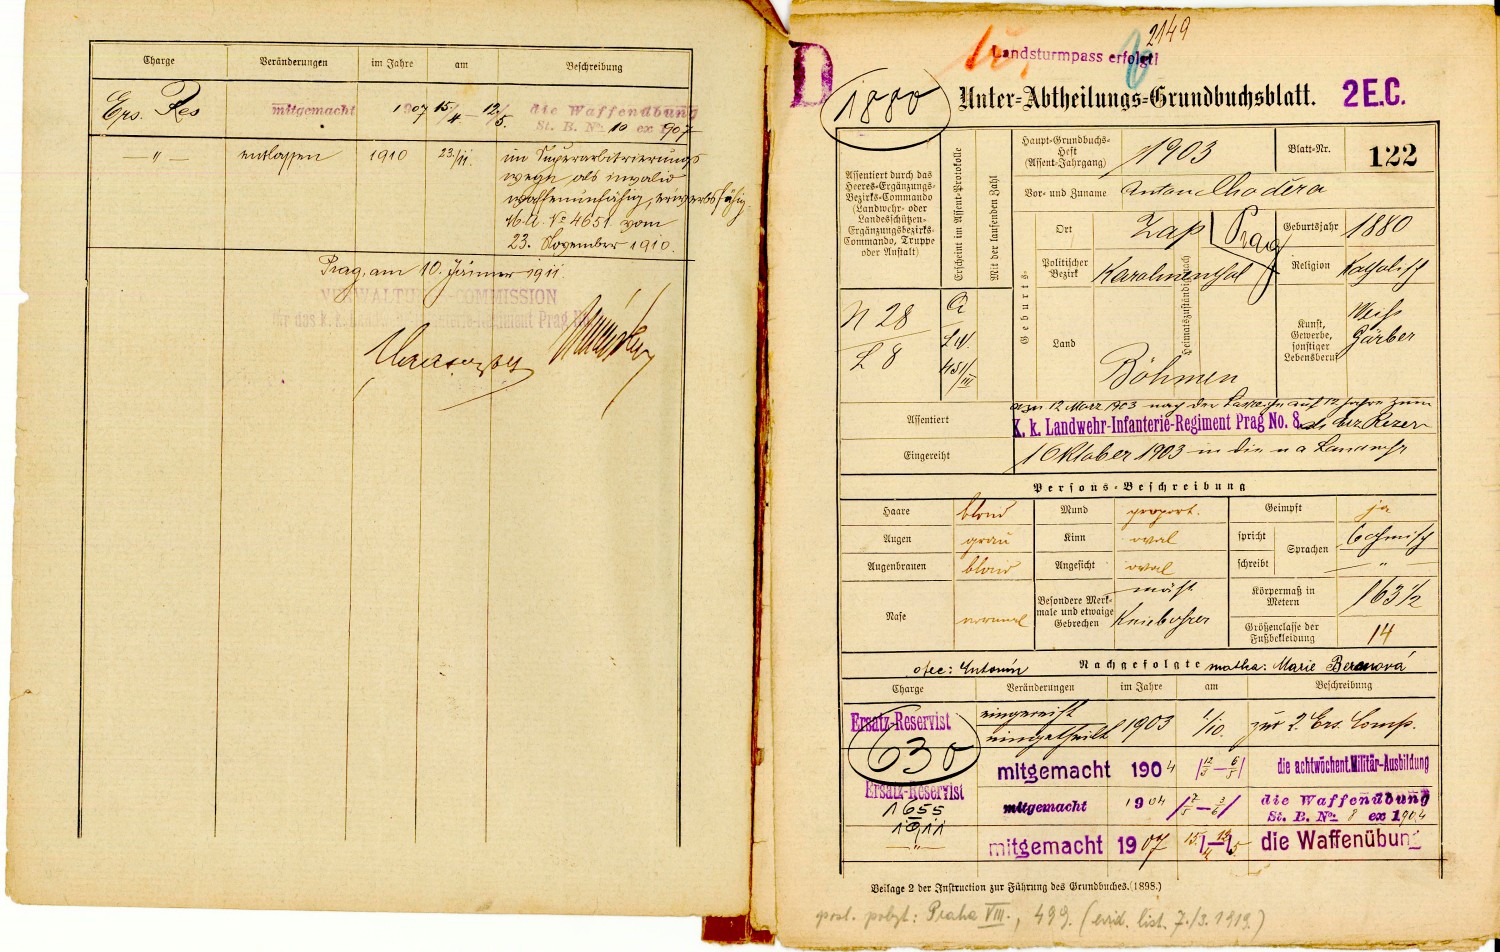 Charge Veränderungen im Jahre am Beschreibung
Ers. Res mitgemacht 1907 15/4 – 12/5. die Waffenübung
St. B. No 10 ex 907
— " — entlassen 1910 23./11. im Superarbitrierungs
wege als invalid
waffenunfähig, erwerbsfähig.
No 4651 vom
23. November 1910.
Prag, am 10. Jänner 1911.
VERWALTUNGS-COMMISSION
Regiment Prag No
2149
Landsturmpass erfolgt!
D
1880
Unter-Abtheilungs-Grundbuchsblatt.
2 E.C.
Assentiert durch das
Heeres-Ergänzungs-
Bezirks-Commando
(Landwehr- oder
Landesschützen-
Ergänzungsbezirks-
Commando, Truppe
oder Anstalt)
Erscheint im Assent-Protokolle
Mit der laufenden Zahl
N 28
L 8
Haupt-Grundbuchs-
Heft
(Assent-Jahrgang)
1903
Blatt-Nr.
122
Vor- und Zuname Anton Choděra
Geburts-
Heimatszuständigkeit nach
Ort Zap Prag
Politischer
Bezirk Karolinenthal
Land Böhmen
Geburtsjahr 1880
Religion Katholisch
Kunst,
Gewerbe,
sonstiger
Lebensberuf
Weiß
Gärber
Assentiert
12 März 1903 nach der auf 12 Jahre zum
K. k. Landwehr-Infanterie-Regiment Prag No. 8.
Eingereiht
1 Oktober 1903 in die Landwehr
Persons-Beschreibung
Haare blond Mund proport. Geimpft ja
Augen grau Kinn oval spricht Sprachen böhmisch
Augenbrauen blond Angesicht oval schreibt — " —
Nase normal
Besondere Merk-
male und etwaige
Gebrechen
Kniebohrer
Körpermaß in
Metern
163 1/2
Größenclasse der
Fußbekleidung
14
otec: Antonín Nachgefolgte matka: Marie Beranová
Charge Veränderungen im Jahre am Beschreibung
Ersatz-Reservist eingereiht
eingetheilt 1903 1/10. zur 2. Ers. Comp.
630
mitgemacht 1904 12/3 – 6/5 die achtwöchent. Militär-Ausbildung
Ersatz-Reservist
1655
1911
mitgemacht 1904 7/5 – 3/6 die Waffenübung
St. B. No. 8 ex 1904
— " — mitgemacht 1907 15/4 – 12/5 die Waffenübung
Beilage 2 der Instruction zur Führung des Grundbuches. (1898.)
posl. pobyt: Praha VIII., 499. (evid. list. 7./3. 1919.)